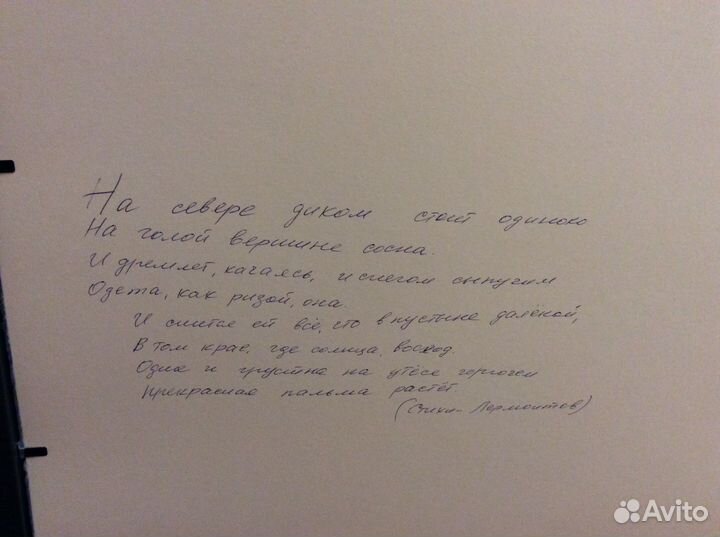 На севере диком стоит одиноко
На голой вершине сосна.
И дремлет, качаясь, и снегом сыпучим
Одета, как ризой, она.
И снится ей всё, что в пустыне далёкой,
В том крае, где солнца, восход.
Одна и грустна на утёсе горючем
Прекрасная пальма растёт
(Стихи - Лермонтов)
Avito